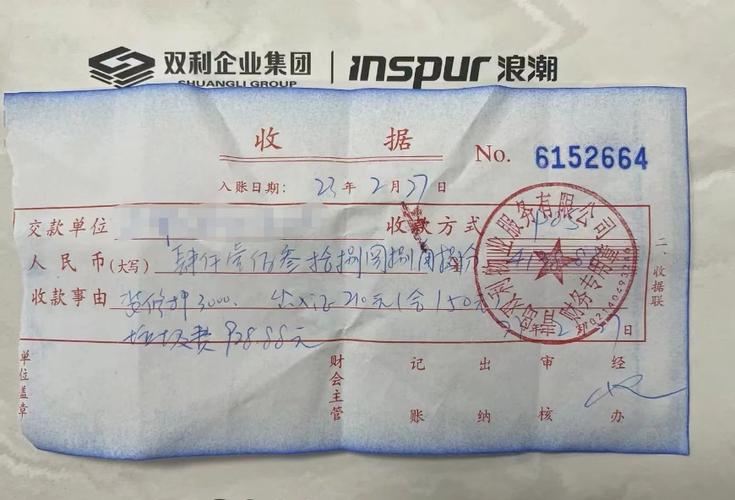 双利企业集团 inspur 浪潮
SHUANGLI GROUP
收据
No. 6152664
入账日期: 23年2月27日
交款单位 收款方式
人民币(大写) 肆仟壹佰叁拾捌圆捌角捌分
收款事由 装修押3000. 出入证210元(含150元
垃圾费928.88元
二、收据联
物业服务有限公司
财务专用章
单位盖章 财会主管 记账 出纳 审核 经办